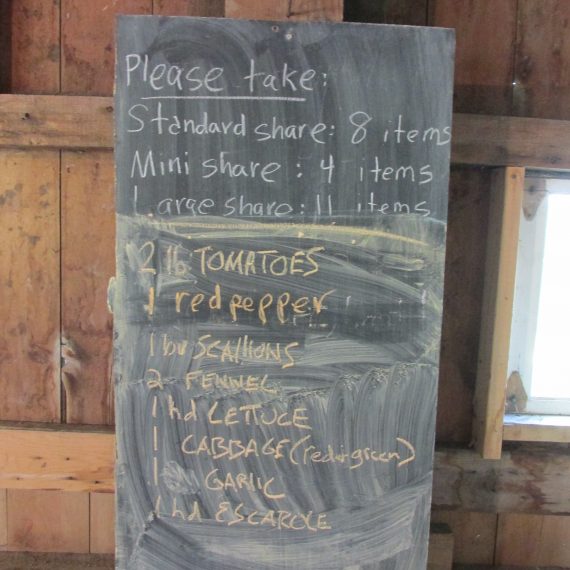 Please take:
Standard share: 8 items
Mini share: 4 items
Large share: 11 items
2 lb TOMATOES
1 red pepper
1 bu SCALLIONS
2 FENNEL
1 hd LETTUCE
1 CABBAGE (red or green)
1 GARLIC
1 hd ESCAROLE